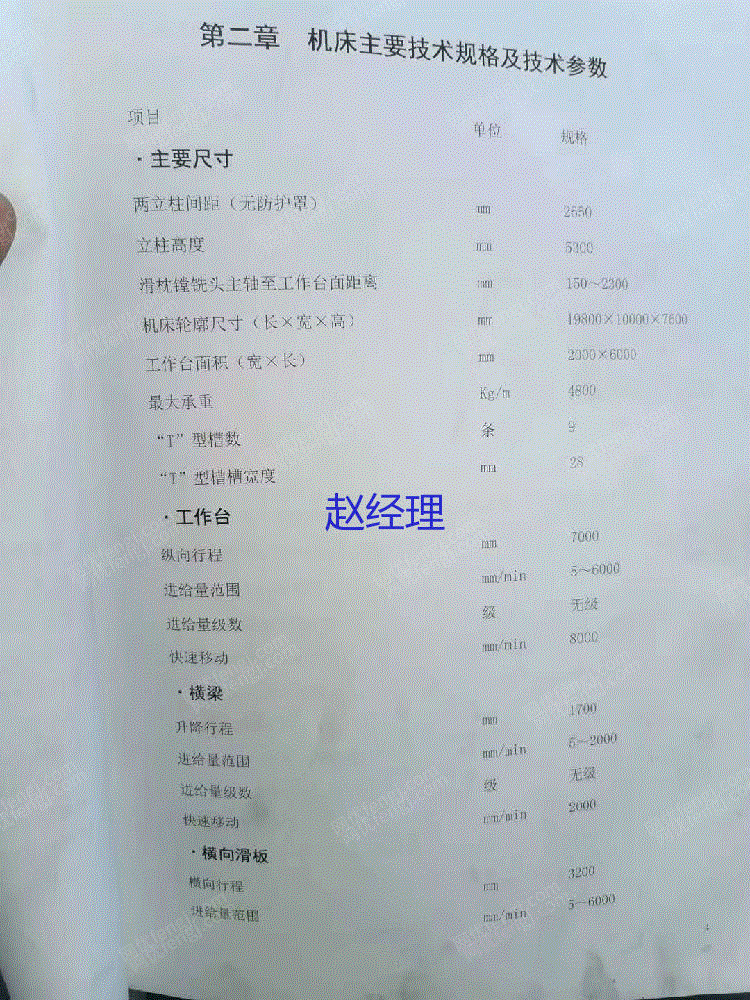 第二章 机床主要技术规格及技术参数
项目 单位 规格
·主要尺寸
两立柱间距（无防护罩） mm 2550
立柱高度 mm 5300
滑枕镗铣头主轴至工作台面距离 mm 150～2300
机床轮廓尺寸（长×宽×高） mm 19800×10000×7600
工作台面积（宽×长） mm 2000×6000
最大承重 Kg/m 4800
“T”型槽数 条 9
“T”型槽槽宽度 mm 28
赵经理
·工作台
纵向行程 mm 7000
进给量范围 mm/min 5～6000
进给量级数 级 无级
快速移动 mm/min 8000
·横梁
升降行程 mm 1700
进给量范围 mm/min 5～2000
进给量级数 级 无级
快速移动 mm/min 2000
·横向滑板
横向行程 mm 3200
进给量范围 mm/min 5～6000